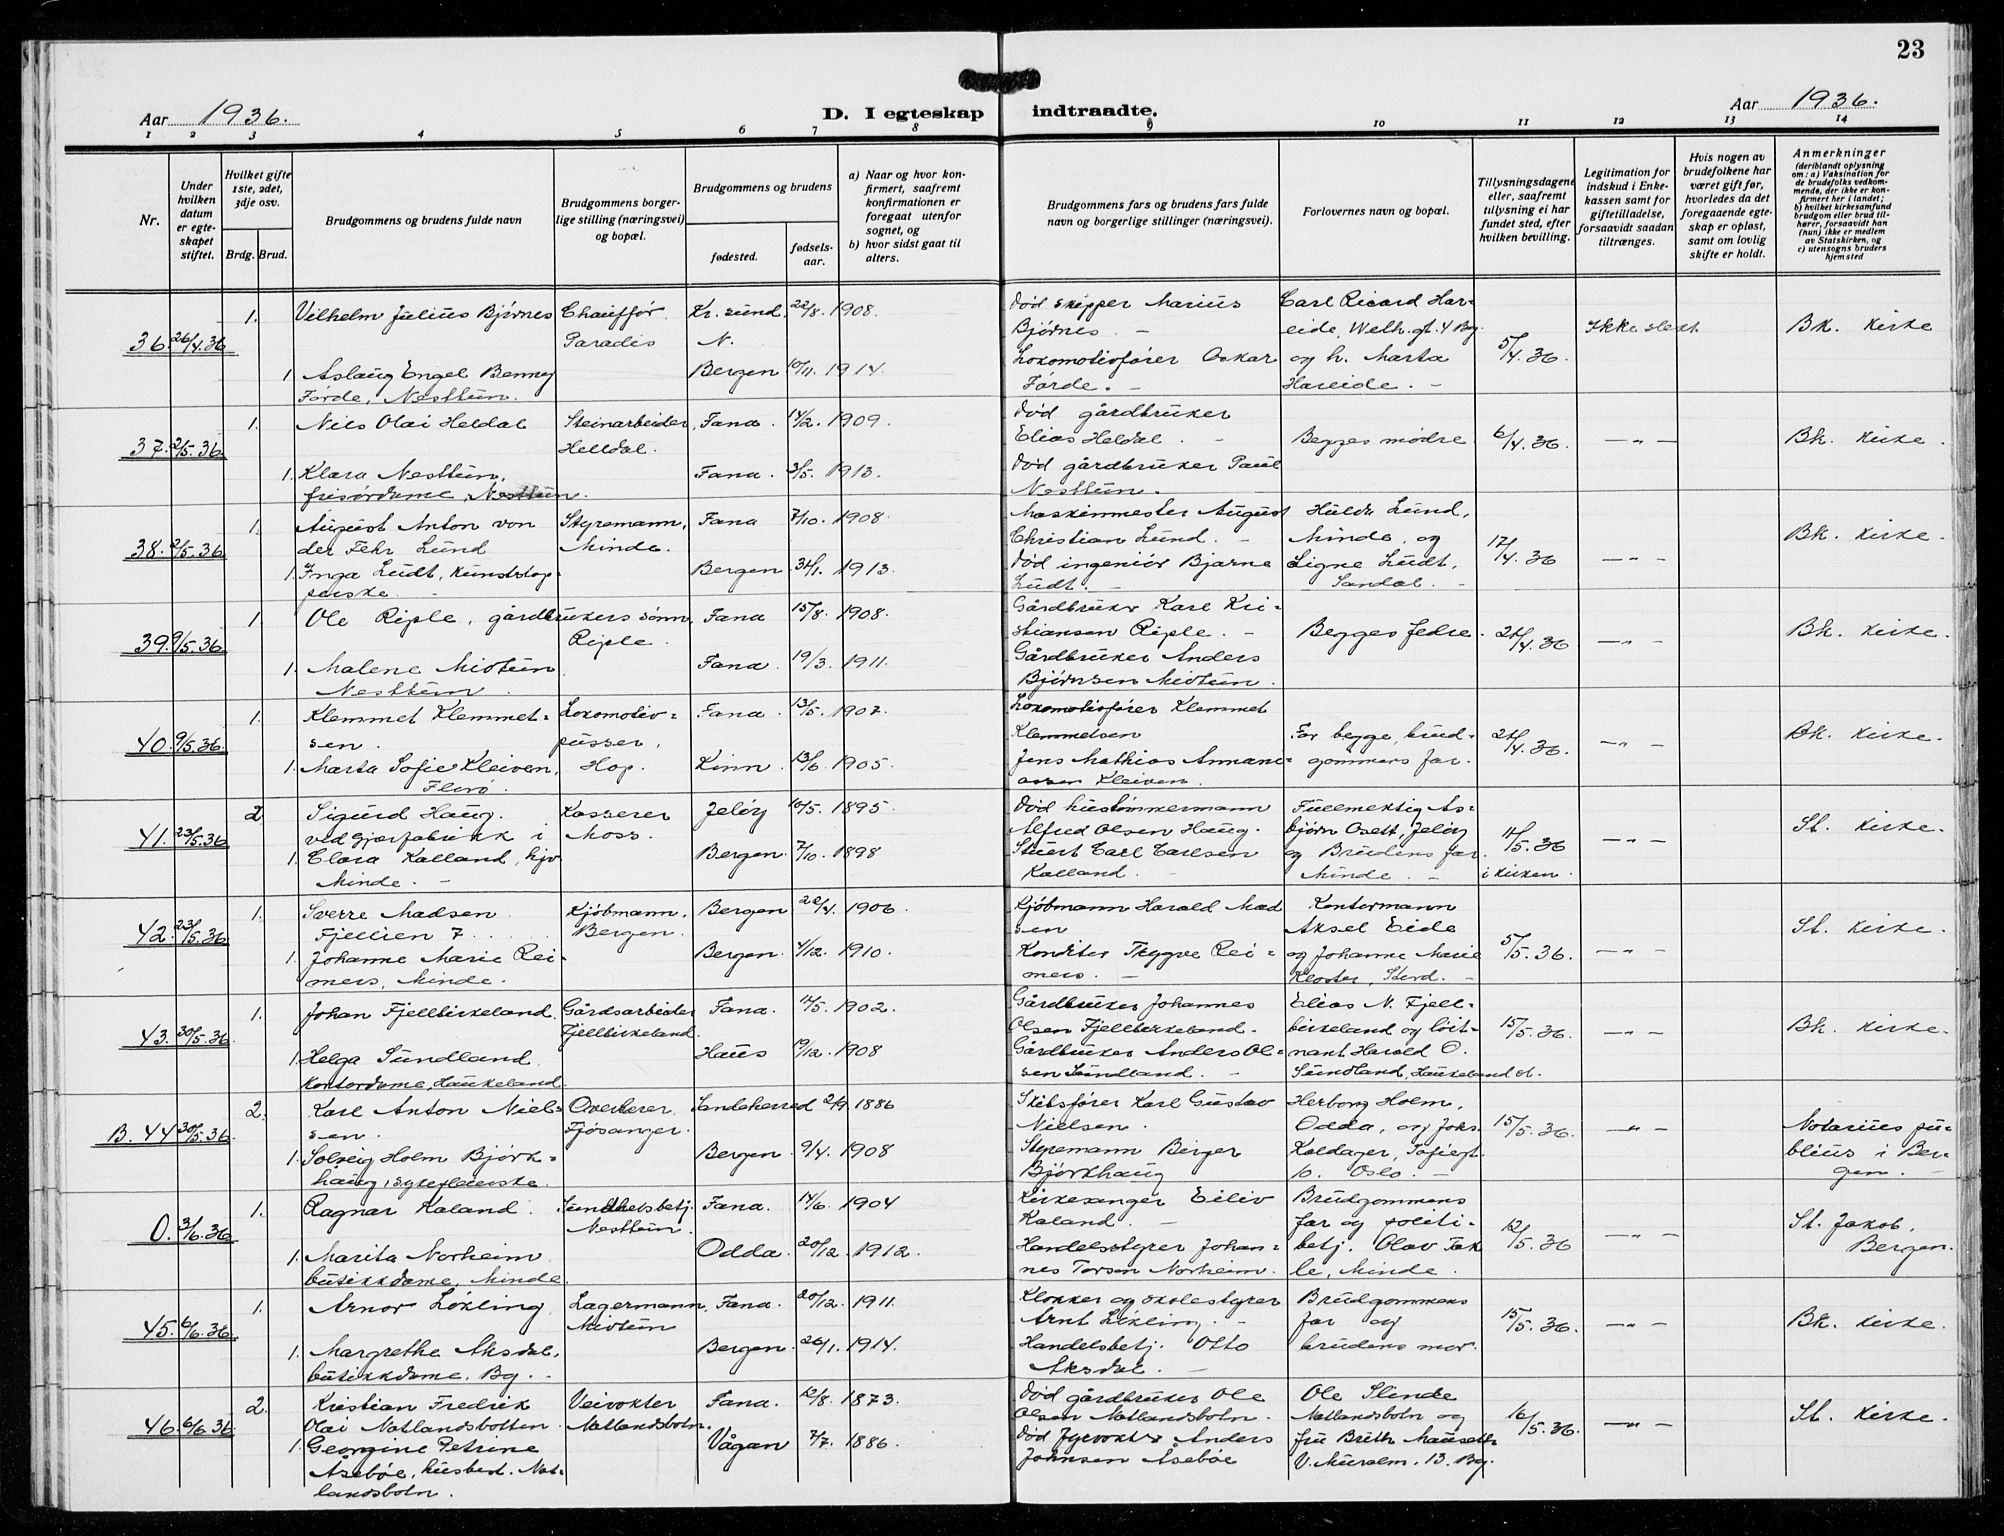 23
Aar 1936.
D. I egteskap indtraadte.
Aar 1936.
1 2 3 4 5 6 7 8 9 10 11 12 13 14
Nr.
Under hvilken datum er egteskapet stiftet.
Hvilket gifte 1ste, 2det, 3dje osv.
Brdg. Brud.
Brudgommens og brudens fulde navn
Brudgommens borgerlige stilling (næringsvei) og bopæl.
Brudgommens og brudens
fødested.
fødselsaar.
a) Naar og hvor konfirmert, saafremt konfirmationen er foregaat utenfor sognet, og
b) hvor sidst gaat til alters.
Brudgommens fars og brudens fars fulde navn og borgerlige stillinger (næringsvei).
Forlovernes navn og bopæl.
Tillysningsdagene eller, saafremt tillysning ei har fundet sted, efter hvilken bevilling.
Legitimation for indskud i Enkekassen samt for giftetilladelse, forsaavidt saadan tiltrænges.
Hvis nogen av brudefolkene har været gift før, hvorledes da det foregaaende egteskap er opløst, samt om lovlig skifte er holdt.
Anmerkninger
(deriblandt oplysning om: a) Vaksination for de brudefolks vedkommende, der ikke er konfirmert her i landet; b) hvilket kirkesamfund brudgom eller brud tilhører, forsaavidt han (hun) ikke er medlem av Statskirken, og c) utensogns bruders hjemsted
36. 26/4.36 1. Vilhelm Julius Bjørnes Chauffør Paradis Kr. sund N. 22/8. 1908.
1 Aslaug Engel Benney Førde, Nesttun. Bergen 10/11. 1914.
Død skipper Marius Bjørnes. -
Lokomotivfører Oskar Førde. -
Carl Ricard Hareide, Welh. gt. 4 Bg. og h. Marta Hareide. -
5/4.36. Ikke slegt Bk. Kirke
37. 2/5.36 1. Nils Olai Heldal Steinarbeider, Helldal. Fana. 14/2. 1909.
1. Klara Nesttun, frisørdame, Nesttun. Fana. 3/5. 1913.
Død gårdbruker Elias Heldal. -
Død gårdbruker Paul Nesttun. -
Begges mødre 6/4.36. - " - Bk. Kirke.
38. 2/5.36 1. August Anton von der Fehr Lund Styremann, Minde. Fana 7/10. 1908.
1. Inga Ludt, Kunststoppeske. - Bergen 31/1. 1913.
Maskinmester August Christian Lund. -
Død ingeniør Bjarne Ludt. -
Hulda Lund, Minde, og Signe Ludt, Sandal. -
17/4.36 - " - Bk. Kirke.
39. 9/5.36 1. Ole Riple, gårdbrukers sønn, Riple. Fana 15/8. 1908.
1. Malene Midtun Nesttun. Fana. 19/3. 1911.
Gårdbruker Karl Kristiansen Riple. -
Gårdbruker Anders Bjørnsen Midtun.
Begges fedre. 24/4.36 - " - Bk. Kirke.
40. 9/5.36. 1. Klemmet Klemmetsen. Lokomotivpusser, Hop. Fana. 13/5. 1907.
1. Marta Sofie Kleiven, Florø. Kinn. 13/6. 1905.
Lokomotivfører Klemmet Klemmetsen
Jens Mathias Annaniassen Kleiven.
For begge, brudgommens far.
24/4.36. - " - Bk. Kirke.
41. 23/5.36 2. Sigurd Haug. ved gjærfabrikk i Kasserer Moss. Jeløy 10/5. 1895.
1. Clara Kalland, hjv Minde. - Bergen. 7/10. 1898
Død hustømmermann Alfred Olsen Haug.
Stuert Carl Carlsen Kalland. -
Fullmektig Asbjørn Osett, Jeløy og Brudens far Minde. -
11/5.36 i kirken. - " - St. Kirke.
42. 23/5.36. 1. Sverre Madsen Fjellien 7. Kjøbmann, Bergen. Bergen 22/4. 1906.
1. Johanne Marie Reimers, Minde. Bergen. 4/12. 1910.
Kjøbmann Harald Madsen
Konditor Trygve Reimers. -
Kontormann Aksel Eide og Johanne Marie Kloster, Stord. -
5/5.36. - " - St. Kirke.
43. 30/5.36 1. Johan Fjellbirkeland. Gårdsarbeider Fjellbirkeland. Fana. 11/5. 1902.
1. Helga Sundland. Kontordame, Haukeland. Haus 19/12. 1908
Gårdbruker Johannes Olsen Fjellbirkeland. -
Gårdbruker Anders Olsen Sundland. -
Elias N. Fjellbirkeland og løitnant Harald O. Sundland, Haukeland st.
15/5.36. - " - Bk. Kirke.
B. 44 30/5.36. 2. Karl Anton Nielsen. Overkerer. Fjøsanger. Sandeherred 2/9. 1886
1. Solveig Holm Bjørkhaug, sykepleierske. Bergen. 9/4. 1908
Skibsfører Karl Gustav Nielsen.
Styremann Berger Bjørkhaug
Herborg Holm, Odda, og Johs. Koldager, Sofiegt. Oslo. -
15/5.36. - " - Notarius publicus i Bergen. -
0. 3/6.36 1. Ragnar Kaland. Sundhetsbetj. Nesttun. Fana. 14/6. 1904
1. Marita Norheim. butikkdame, Minde. Odda. 20/12. 1912.
Kirkesanger Eiliv Kaland. -
Handelsstyrer Johannes Torsen Norheim.
Brudgommens far og politibetj. Olav Takle, Minde.
12/5.36 - " - St. Jakob, Bergen.
45. 6/6.36 1. Arnor Løkling. Lagermann, Midtun Fana. 20/12. 1911.
1. Margrethe Aksdal, butikkdame, Bg. - Bergen. 26/1. 1914.
Klokker og skolestyrer Arnt Løkling. -
Handelsbetj. Otto Aksdal. -
Brudgommens far og brudens mor.
15/5.36. - " - Bk. Kirke.
46. 6/6.36 2. Kristian Fredrik Olai Natlandsbotten Veivokter Natlandsbotn. Fana. 12/8. 1873.
1. Georgine Petrine Åsebøe, husbest. Natlandsbotn. Vågan 7/7. 1886.
Død gårdbruker Ole Olsen Natlandsbotn.
Død fyrvokter Anders Johnsen Åsebøe
Ole Slinde Natlandsbotn og fru Brith Mauseth V. Muralm. 13. Bg.
16/5.36. - " - St. Kirke.